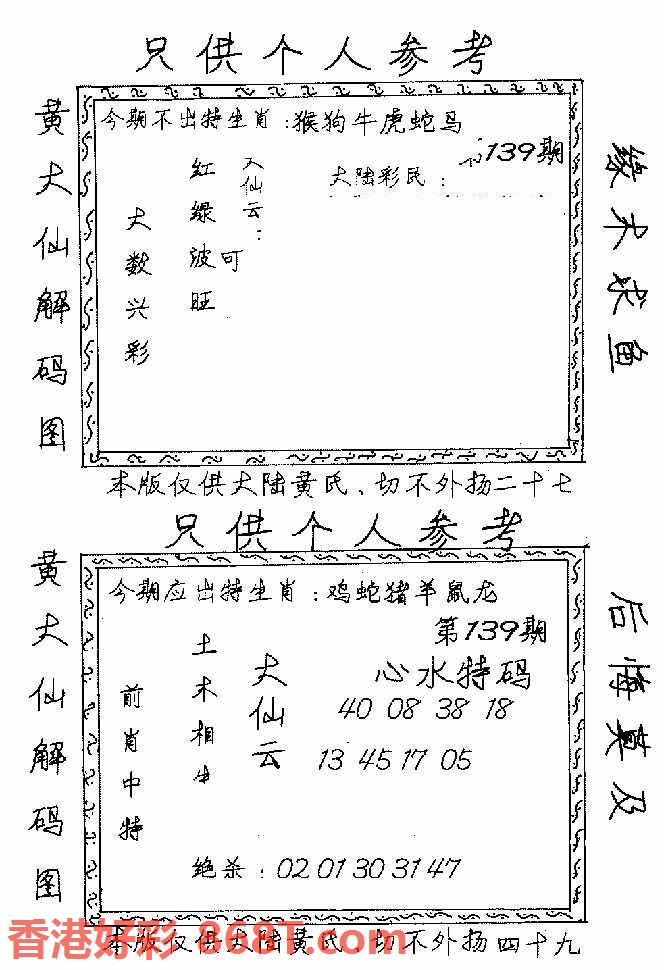 只供个人参考
黄大仙解码图
今期不出特生肖:猴狗牛虎蛇马
139期
大陆彩民:
大仙云:
红绿波可旺
大数兴彩
缘木求鱼
本版仅供大陆黄氏、切不外扬二十七
只供个人参考
黄大仙解码图
今期应出特生肖:鸡蛇猪羊鼠龙
第139期
心水特码
40 08 38 18
13 45 17 05
大仙云
土木相生
前肖中特
绝杀:02 01 30 31 47
后悔莫及
本版仅供大陆黄氏、切不外扬四十九
香港好彩 868T.com